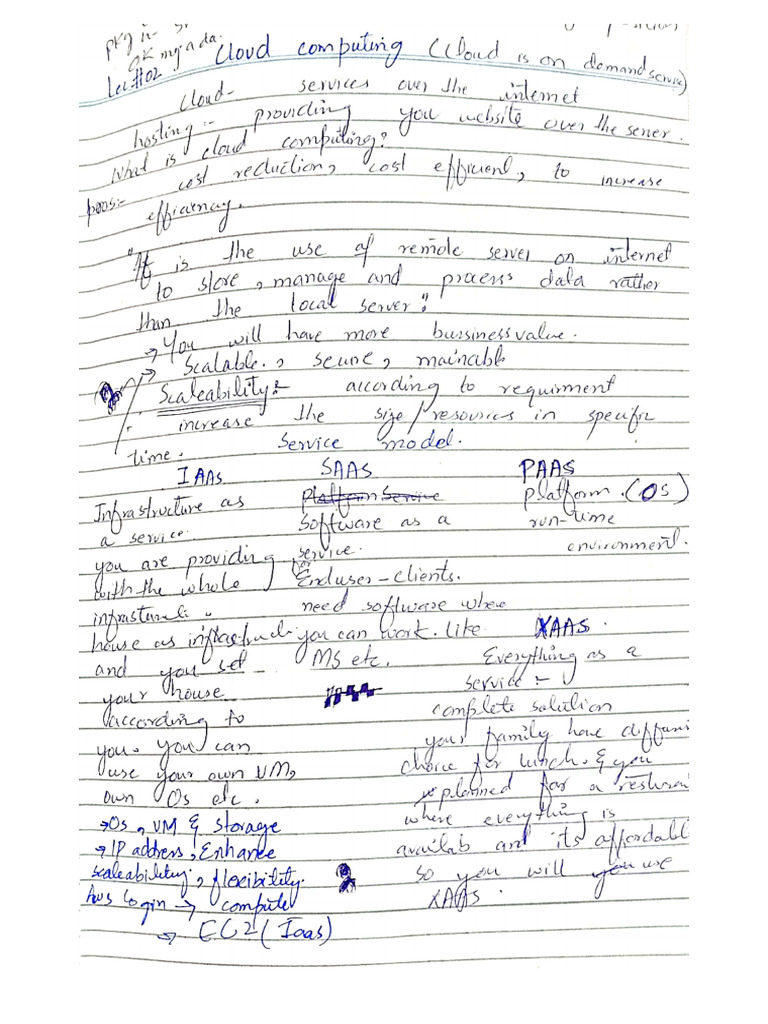 Lec#02 Cloud computing (Cloud is on demand service)
Cloud- services over the internet
hosting:- providing you website over the server.
What is cloud computing?
pros:- cost reduction, cost efficient, to increase
efficiency.
"It is the use of remote server on internet
to store, manage and process data rather
than the local server".
→ You will have more bussiness value.
→ Scalable., secure, mainable
Scaleability:- according to requirment
increase the size/resources in specific
time.
Service model.
IAAS SAAS PAAS
Infrastructure as platform Service platform.(OS)
a service. Software as a run-time
you are providing service. environment.
with the whole for Enduser-clients.
infrasturali. need software where
house as infrastructi you can work. like XAAS.
and you set MS etc. Everything as a
your house service:-
according to complete solution
you. you can your family have diffani
use your own VM, choice for lunch. & you
own Os etc. planned for a resturai
→ Os, VM & Storage where everything is
→ IP address, Enhance availab and its affordabl
scaleability, flexibility. so you will you use
Aws login → compute XAAS.
→ EC2 (Iaas)